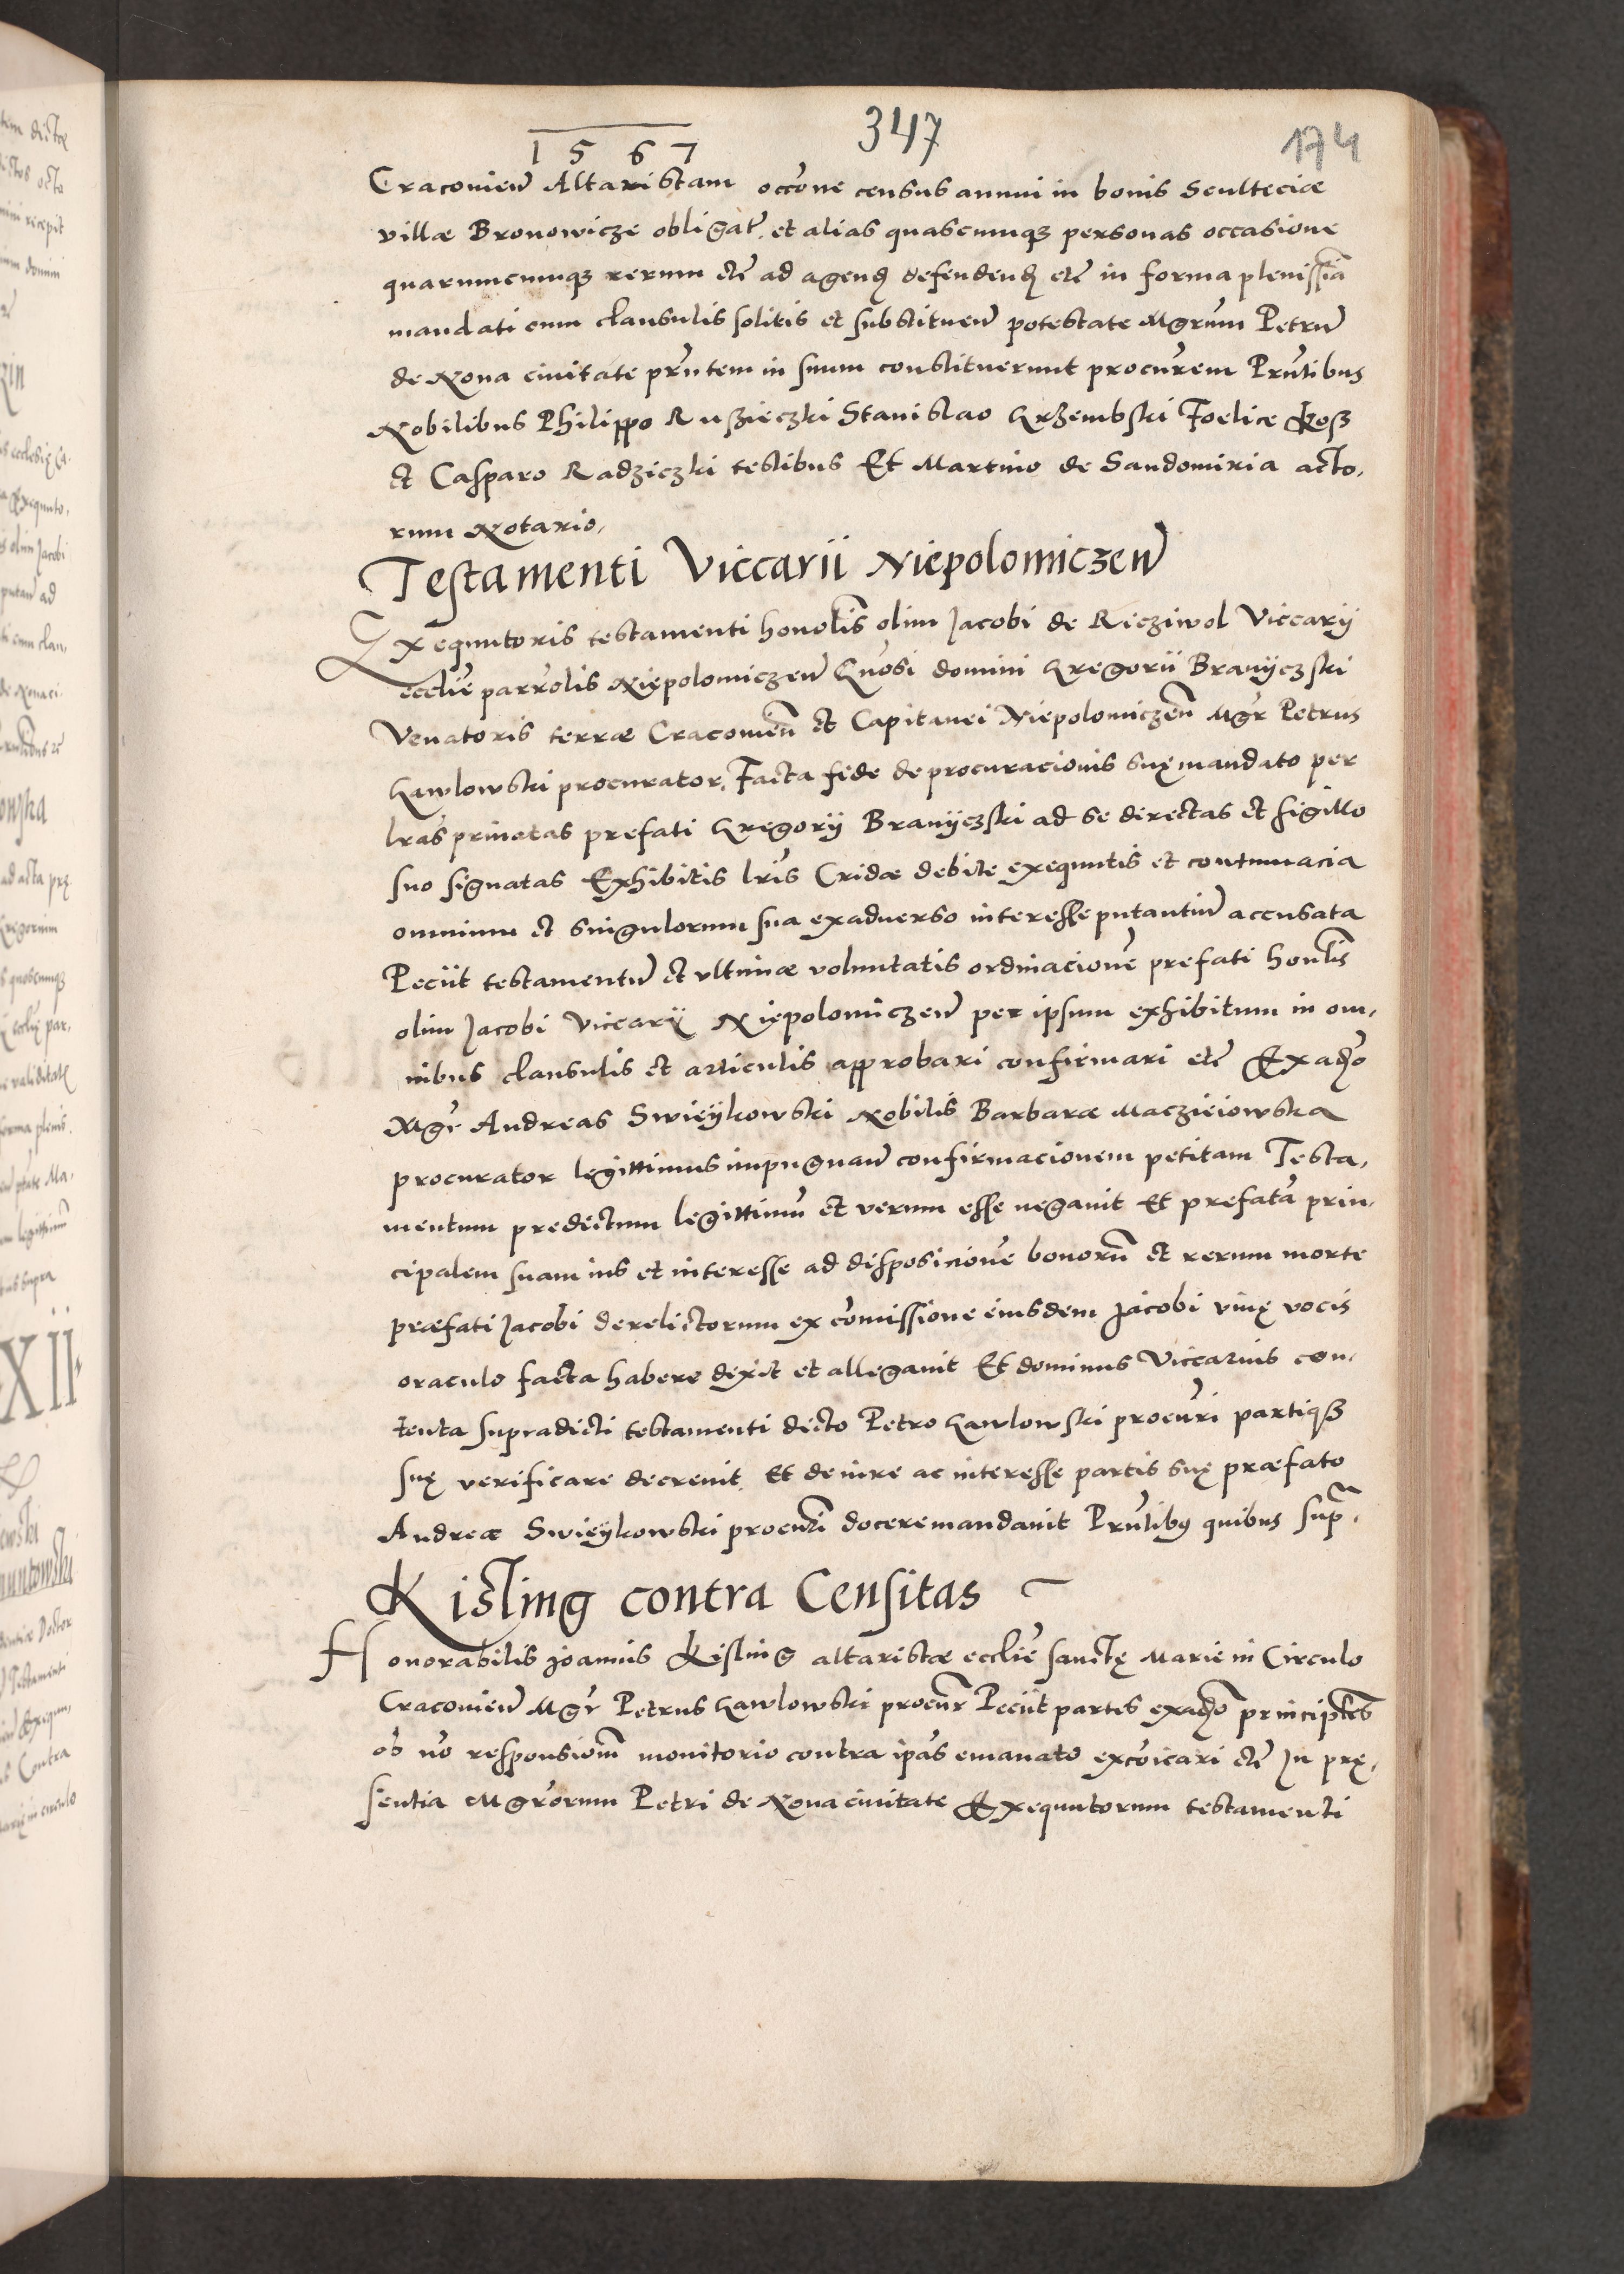 347
174
1567
Craconien̄ Altaristam occōne census annui in bonis Scultecice
villæ Bronowicze obligat̄. et alias quascumqꝫ personas occasione
quarumcumqꝫ rerum etc̄ ad agend̄ defendend̄ etc̄ in forma plenissīa
mandati cum clausulis solitis et substituen̄ potestate Mgr̄um Petrū
de Nova civitate prn̄tem in suum constituerunt procur̄em Prn̄tibus
Nobilibus Philippo Ruszieczki Stanislao Krzembski Foelice Kosz
et Casparo Radzieczki testibus Et Martino de Sandomiria acto,
rum Notario,
Testamenti Viccarii Niepolomiczen̄
Exequutoris testamenti honolis̄ olim Jacobi de Ricziwol Viccarij
eccliē parrōlis Niepolomiczen̄ Gn̄osi domini Gregorii Branyczski
Venatoris terræ Craconien̄ et Capitanei Niepolomiczen̄ Mgr̄ Petrus
Gawlowski procurator, Facta fide de procuracionis suę mandato per
lrās privatas prefati Gregorij Branyczski ad se directas et sigillo
suo signatas Exhibitis lrīs Cridæ debite exequutis et contumacia
omnium et singulorum sua exadverso interesse putantiū accusata
Peciit testamentū et ultimæ voluntatis ordinacionē prefati honlīs
olim Jacobi Viccarij Niepolomiczen̄ per ipsum exhibitum in om,
nibus clausulis et articulis approbari confirmari etc̄ Exadꝫo
Mgr̄ Andreas Swieykowski Nobilis Barbaræ Maczieiowska
procurator legittimus impugnan̄ confirmacionem petitam Testa,
mentum predictum legittimū et verum esse negavit Et prefatā prin,
cipalem suam ius et interesse ad disposicionē bonorū et rerum morte
præfati Jacobi derelictorum ex cōmissione eiusdem Jacobi vivę vocis
oraculo facta habere dixit et allegavit Et dominus Viccarius con,
tenta supradicti testamenti dicto Petro Gawlowski procūri partiqꝫ
suę verificare decrevit. Et de iure ac interesse partis suę præfato
Andreæ Swieykowski procūri docere mandavit Prn̄tibꝫ quibus sup̄.
Kistling contra Censitas
Honorabilis Joannis Kisling altaristæ eccliē sanctę Marię in Circulo
Craconien̄ Mgr̄ Petrus Gawlowski procūr Peciit partes exadꝫo principles̄
ob̄ nō responsionē monitorio contra ipas̄ emanato excōicari etc̄ In prę,
sentia Mgr̄orum Petri de Nova civitate Exequutorum testamenti